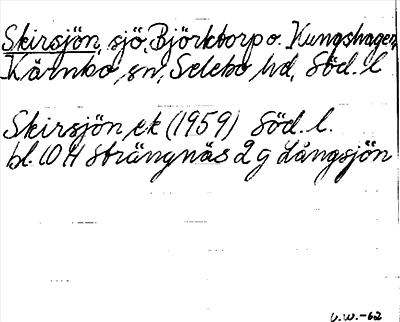 Skirsjön, sjö, Björktorp o. Kungshagen,
Kärnbo sn, Selebo hd, Söd. l
Skirsjön ek (1959) Söd. l.
bl. 10 H Strängnäs 2 g Långsjön
U.W.-62